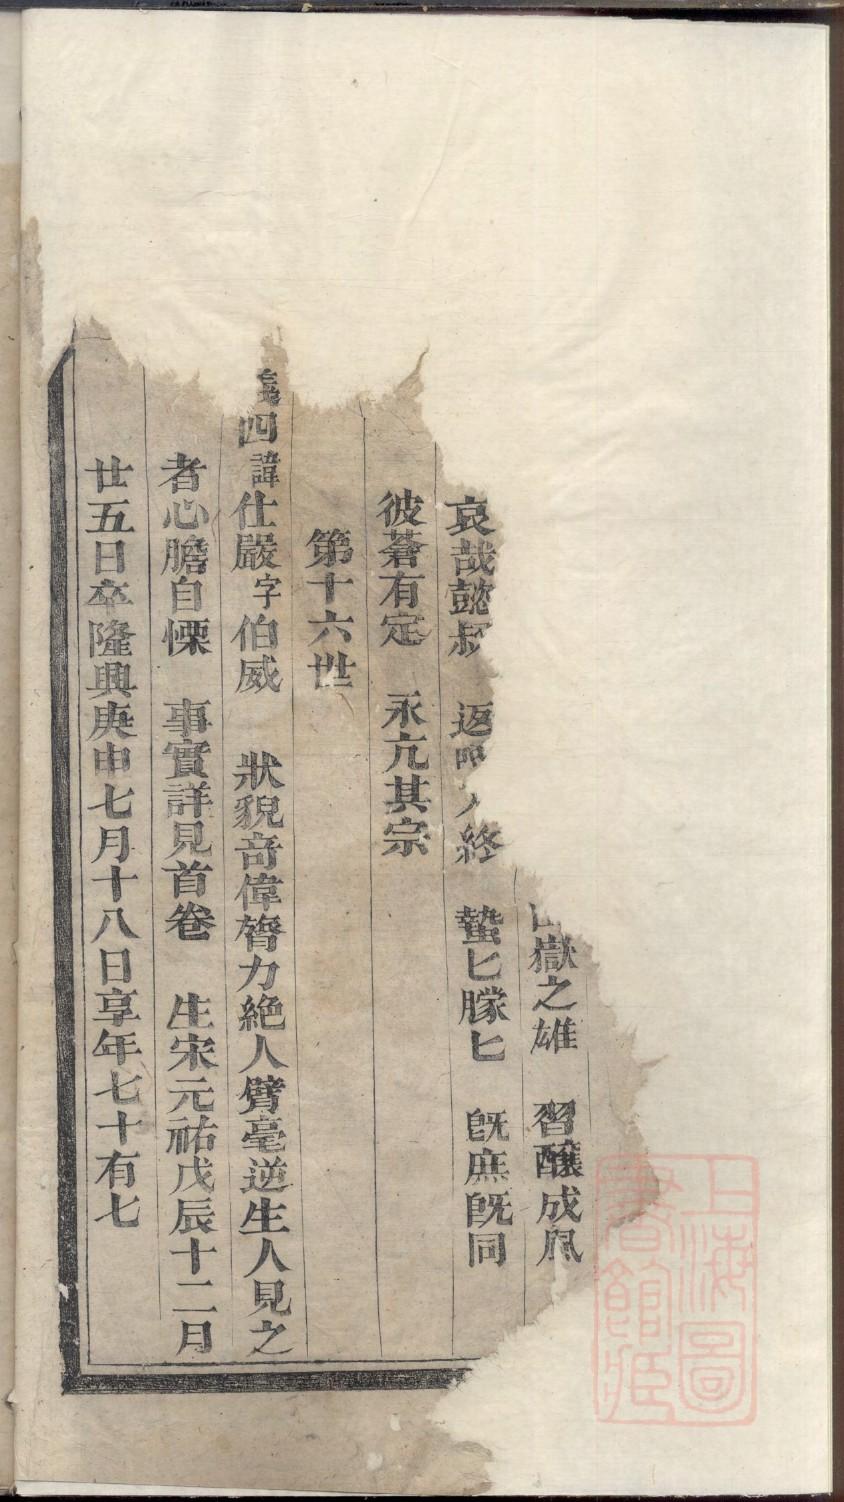 嶽之雄 習釀成風
哀哉懿叔 返 人終 蟄匕朦匕 旣庶旣同
彼蒼有定 永亢其宗
第十六世
四諱仕嚴字伯威 狀貌奇偉膂力絶人臂毫逆生人見之
者心膽自慄 事實詳見首卷 生宋元祐戊辰十二月
廿五日卒隆興庚申七月十八日享年七十有七
上海圖
書館藏